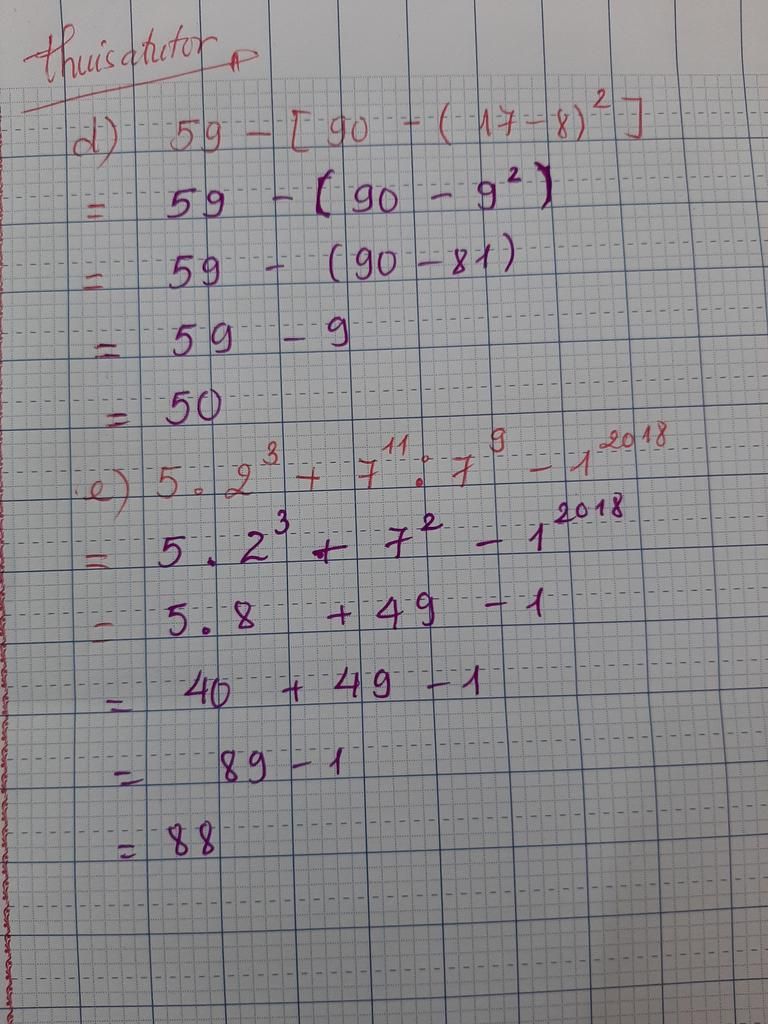 thuisatutor
d) 59 - [90 - (17-8)²]
= 59 - [90 - 9²]
= 59 - (90 - 81)
= 59 - 9
= 50
e) 5 . 2³ + 7¹¹ : 7⁹ - 1²⁰¹⁸
= 5 . 2³ + 7² - 1²⁰¹⁸
= 5 . 8 + 49 - 1
= 40 + 49 - 1
= 89 - 1
= 88